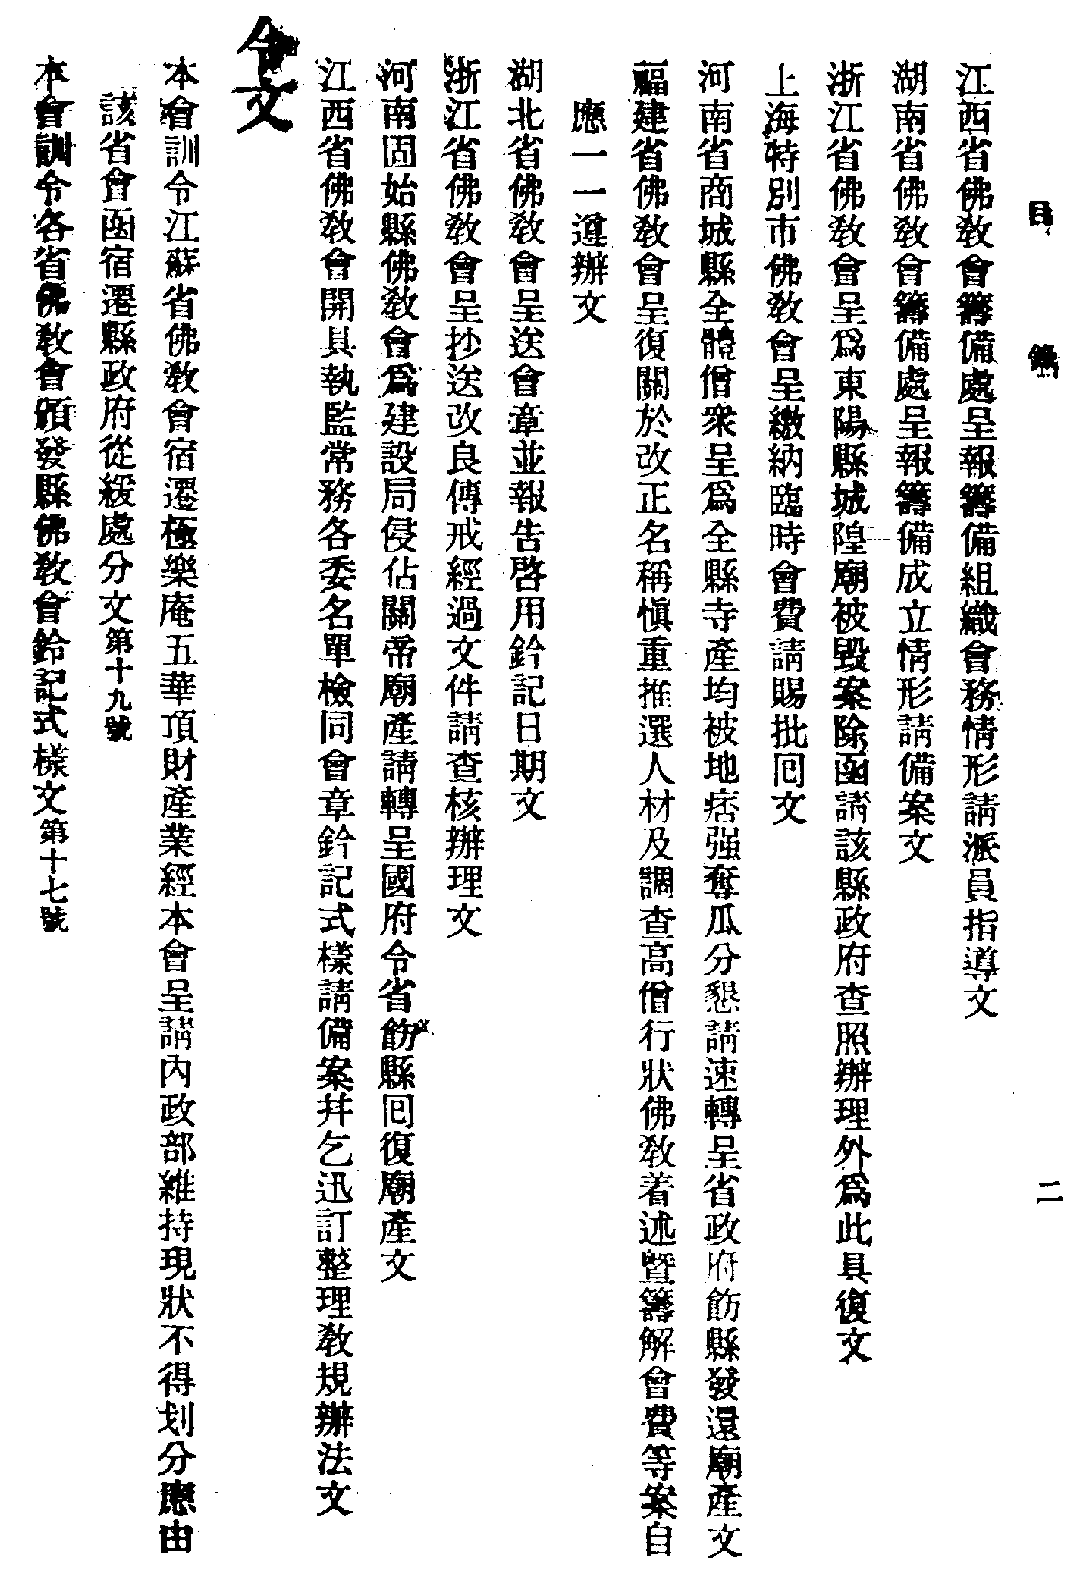 目錄
二
江西省佛敎會籌備處呈報籌備組織會務情形請派員指導文
湖南省佛敎會籌備處呈報籌備成立情形請備案文
浙江省佛敎會呈爲東陽縣城隍廟被毀案除函請該縣政府查照辦理外爲此具復文
上海特別市佛敎會呈繳納臨時會費請賜批囘文
河南省商城縣全體僧衆呈爲全縣寺產均被地痞强奪瓜分懇請速轉呈省政府飭縣發還廟產文
福建省佛敎會呈復關於改正名稱愼重推選人材及調查高僧行狀佛敎着述暨籌解會費等案自
應一一遵辦文
湖北省佛敎會呈送會章並報告啓用鈐記日期文
浙江省佛敎會呈抄送改良傳戒經過文件請查核辦理文
河南固始縣佛敎會爲建設局侵佔關帝廟產請轉呈國府令省飭縣囘復廟產文
江西省佛敎會開具執監常務各委名單檢同會章鈐記式樣請備案幷乞迅訂整理敎規辦法文
令文
本會訓令江蘇省佛敎會宿遷極樂庵五華頂財產業經本會呈請內政部維持現狀不得划分應由
該省會函宿遷縣政府從緩處分文第十九號
本會訓令各省佛敎會頒發縣佛敎會鈐記式樣文第十七號